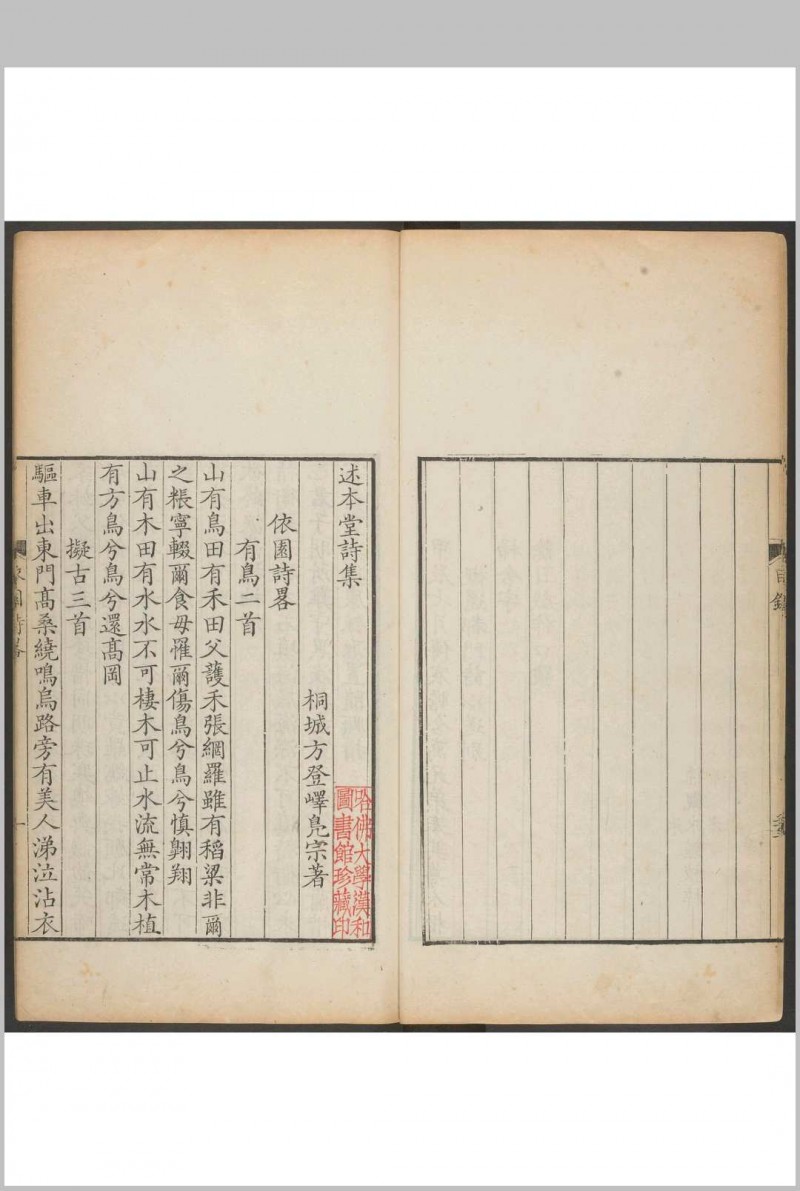 目錄
述本堂詩集
桐城方登嶧鳧宗著
依園詩畧
有鳥二首
山有鳥田有禾田父護禾張網羅雖有稻粱非爾
之粻寧輟爾食毋罹爾傷鳥兮鳥兮慎翺翔
山有木田有水水不可棲木可止水流無常木植
有方鳥兮鳥兮還髙岡
擬古三首
驅車出東門髙桑繞鳴烏路旁有美人涕泣沾衣
依園詩畧
一
哈佛大學漢和
圖書館珍藏印